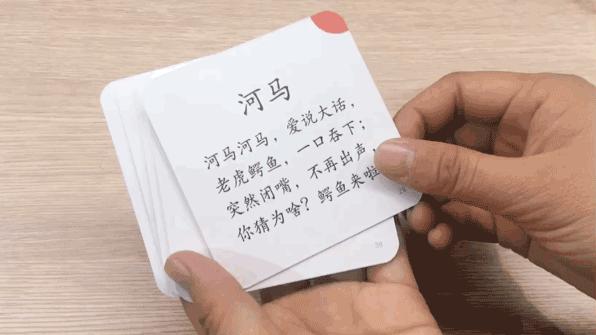 河马
河马河马，爱说大话，
老虎鳄鱼，一口吞下；
突然闭嘴，不再出声，
你猜为啥？鳄鱼来啦
39